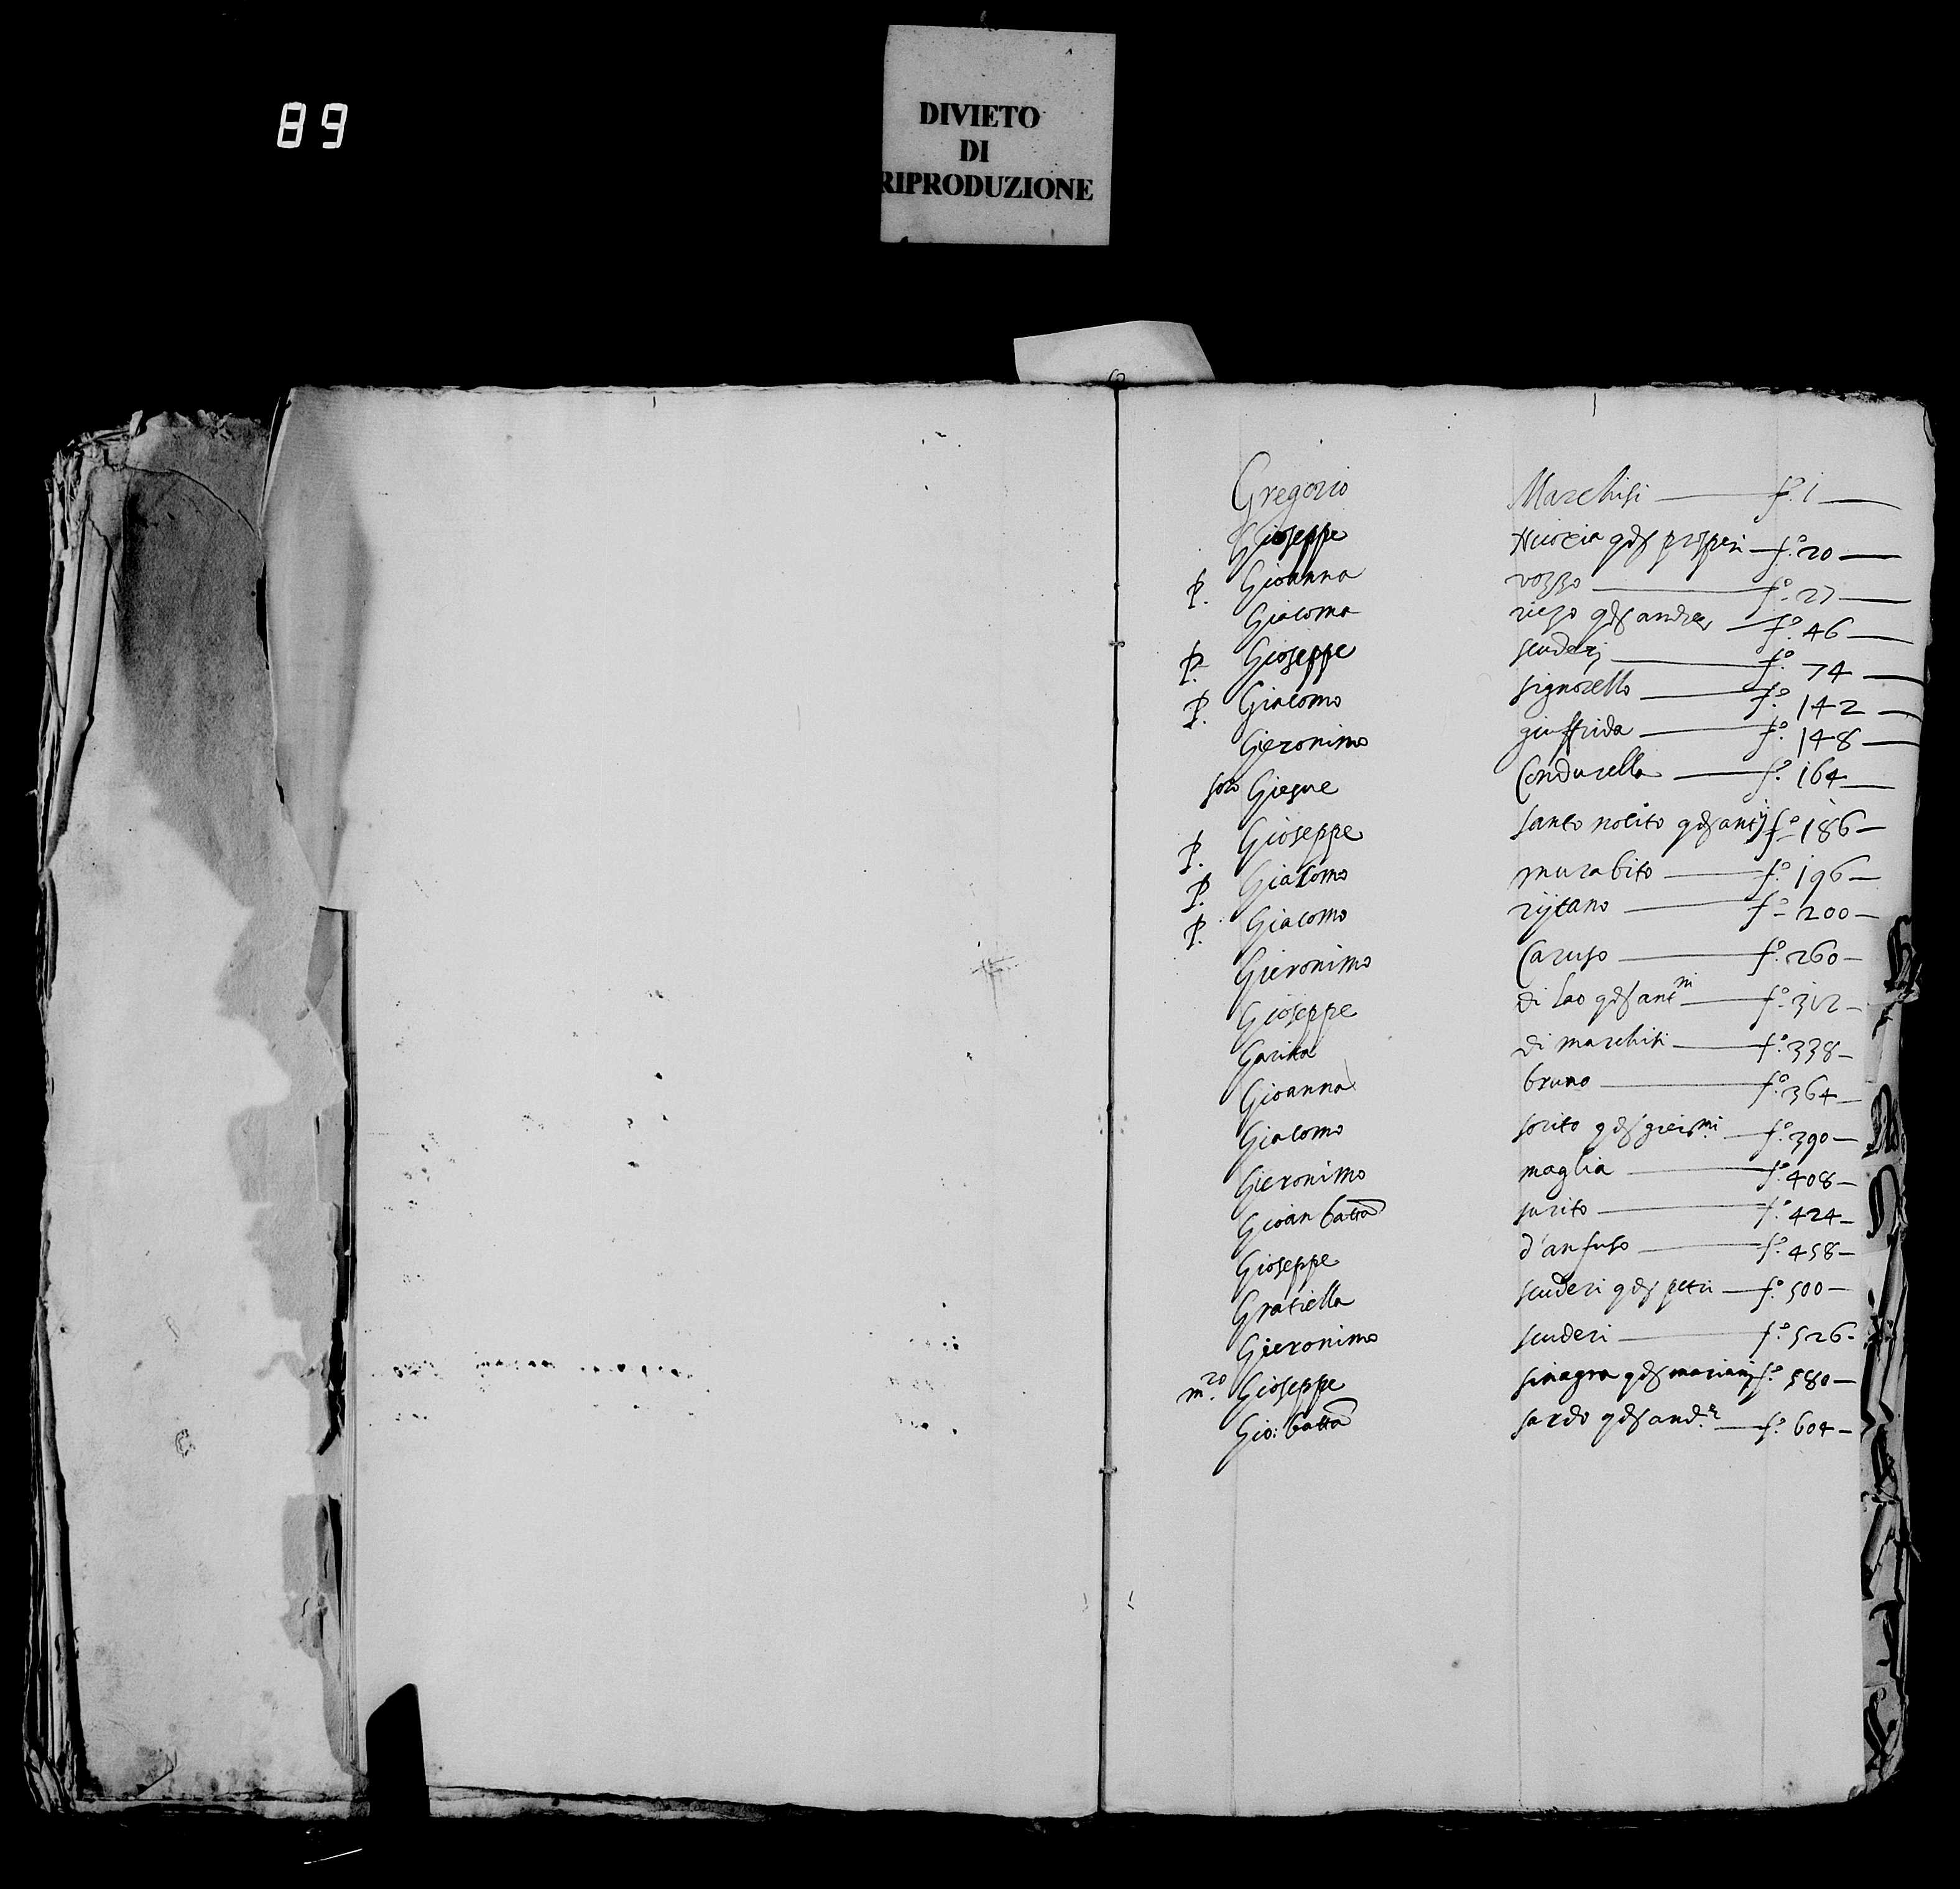 89
DIVIETO
DI
RIPRODUZIONE
Gregorio Marchisi f.º 1
Gioseppe qds prosperi f.º 20
P. Gioanna rozzo f.º 27
Giacoma rizzo qds andree f.º 46
P. Gioseppe scuderj f.º 74
P. Giacomo signorello f.º 142
Gieronimo giuffrida f.º 148
soro Giesue Condurella f.º 164
P. Gioseppe santo nocito qds antj f.º 186
P. Giacomo murabito f.º 196
P. Giacomo rijtano f.º 200
Gieronimo Caruso f.º 260
Gioseppe di Lao qds antni f.º 312
di marchisi f.º 338
Gioanna bruno f.º 364
Giacomo sorito qds gieromi f.º 390
Gieronimo maglia f.º 408
Gioan batta surito f.º 424
Gioseppe d'anfuso f.º 458
Gratiella scuderi qds petri f.º 500
Gieronimo scuderi f.º 526
m.ro Gioseppe sinagra qds marianj f.º 580
Gio: batta sardo qds and.e f.º 604